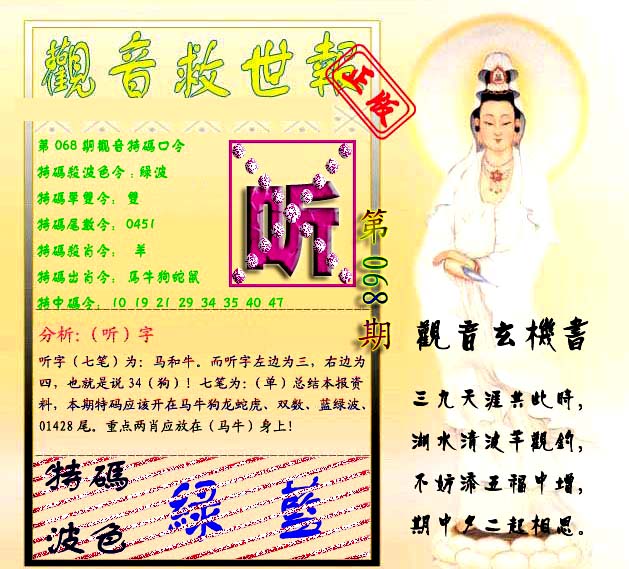 觀音救世報
正版
第068期觀音特碼口令
特碼殺波色令:綠波
特碼單雙令: 雙
特碼尾數令: 0451
特碼殺肖令: 羊
特碼出肖令: 馬牛狗蛇鼠
特中碼令: 10 19 21 29 34 35 40 47
听
第068期
分析:（听）字
听字（七笔）为：马和牛。而听字左边为三，右边为
四，也就是说34（狗）！七笔为：（单）总结本报资
料，本期特码应该开在马牛狗龙蛇虎、双数、蓝绿波、
01428尾。重点两肖应放在（马牛）身上！
特碼
波色
綠 藍
觀音玄機書
三九天涯共此時，
湖水清波羊觀釣，
不妨添五福中增，
期中夕二起相思。